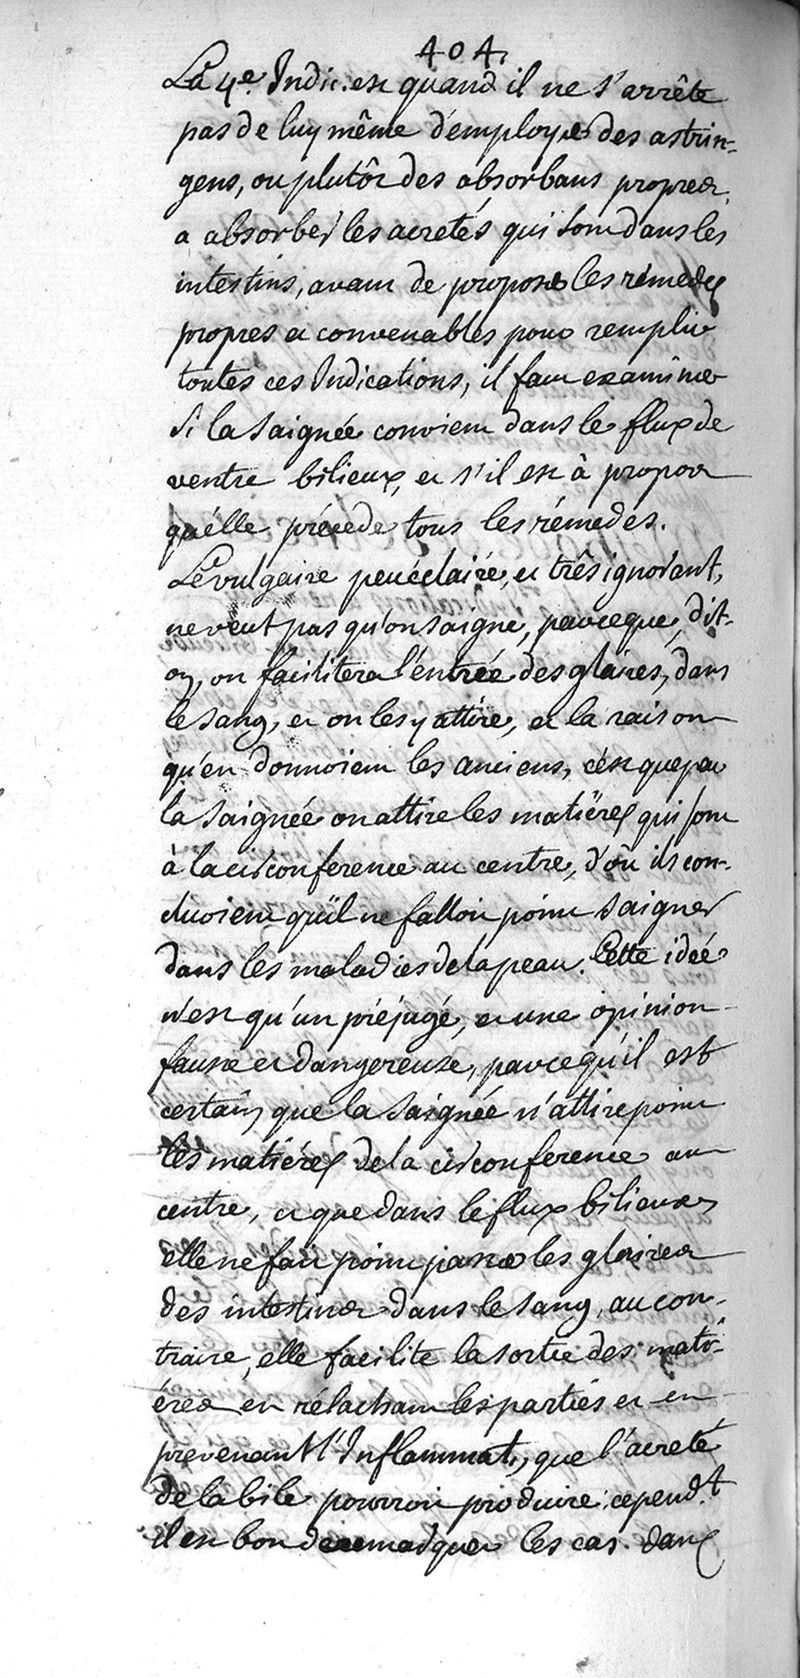 404.
La 4e. Indic. est quand il ne s'arrête
pas de luy même d'employer des astrin-
gens, ou plutôt des absorbans propres
a absorber les acretés qui sont dans les
intestins, avant de proposer les rémedes
propres et convenables pour remplir
toutes ces Indications, il faut examiner
si la saignée convient dans le flux de
ventre bilieux, et s'il est à propos
qu'élle précede tous les rémedes.
Le vulgaire peu éclairé, et três ignorant,
ne veut pas qu'on saigne, parceque, dit-
on, on facilitera l'entrée des glaires, dans
le sang, et on les y attire, et la raison
qu'en donnoient les anciens, c'ést que par
la saignée on attire les matiéres qui sont
à la circonference au centre, d'où ils con-
cluoient qu'il ne falloit point saigner
dans les maladies de la peau. Cette ideé
n'est qu'un préjugé, et une opinion
fausse et dangereuse, parcequ'il est
certain, que la saignée n'attire point
les matiéres de la circonference au
centre, et que dans le flux bilieux,
elle ne fait point passer les glaires
des intestins dans le sang, au con-
traire, elle facilite la sortie des mati-
éres en rélachant les partiés et en
prevenant l'Inflammat., que l'acreté
de la bile pourroit produire: cepend.t
il est bon de remarquer les cas. dans